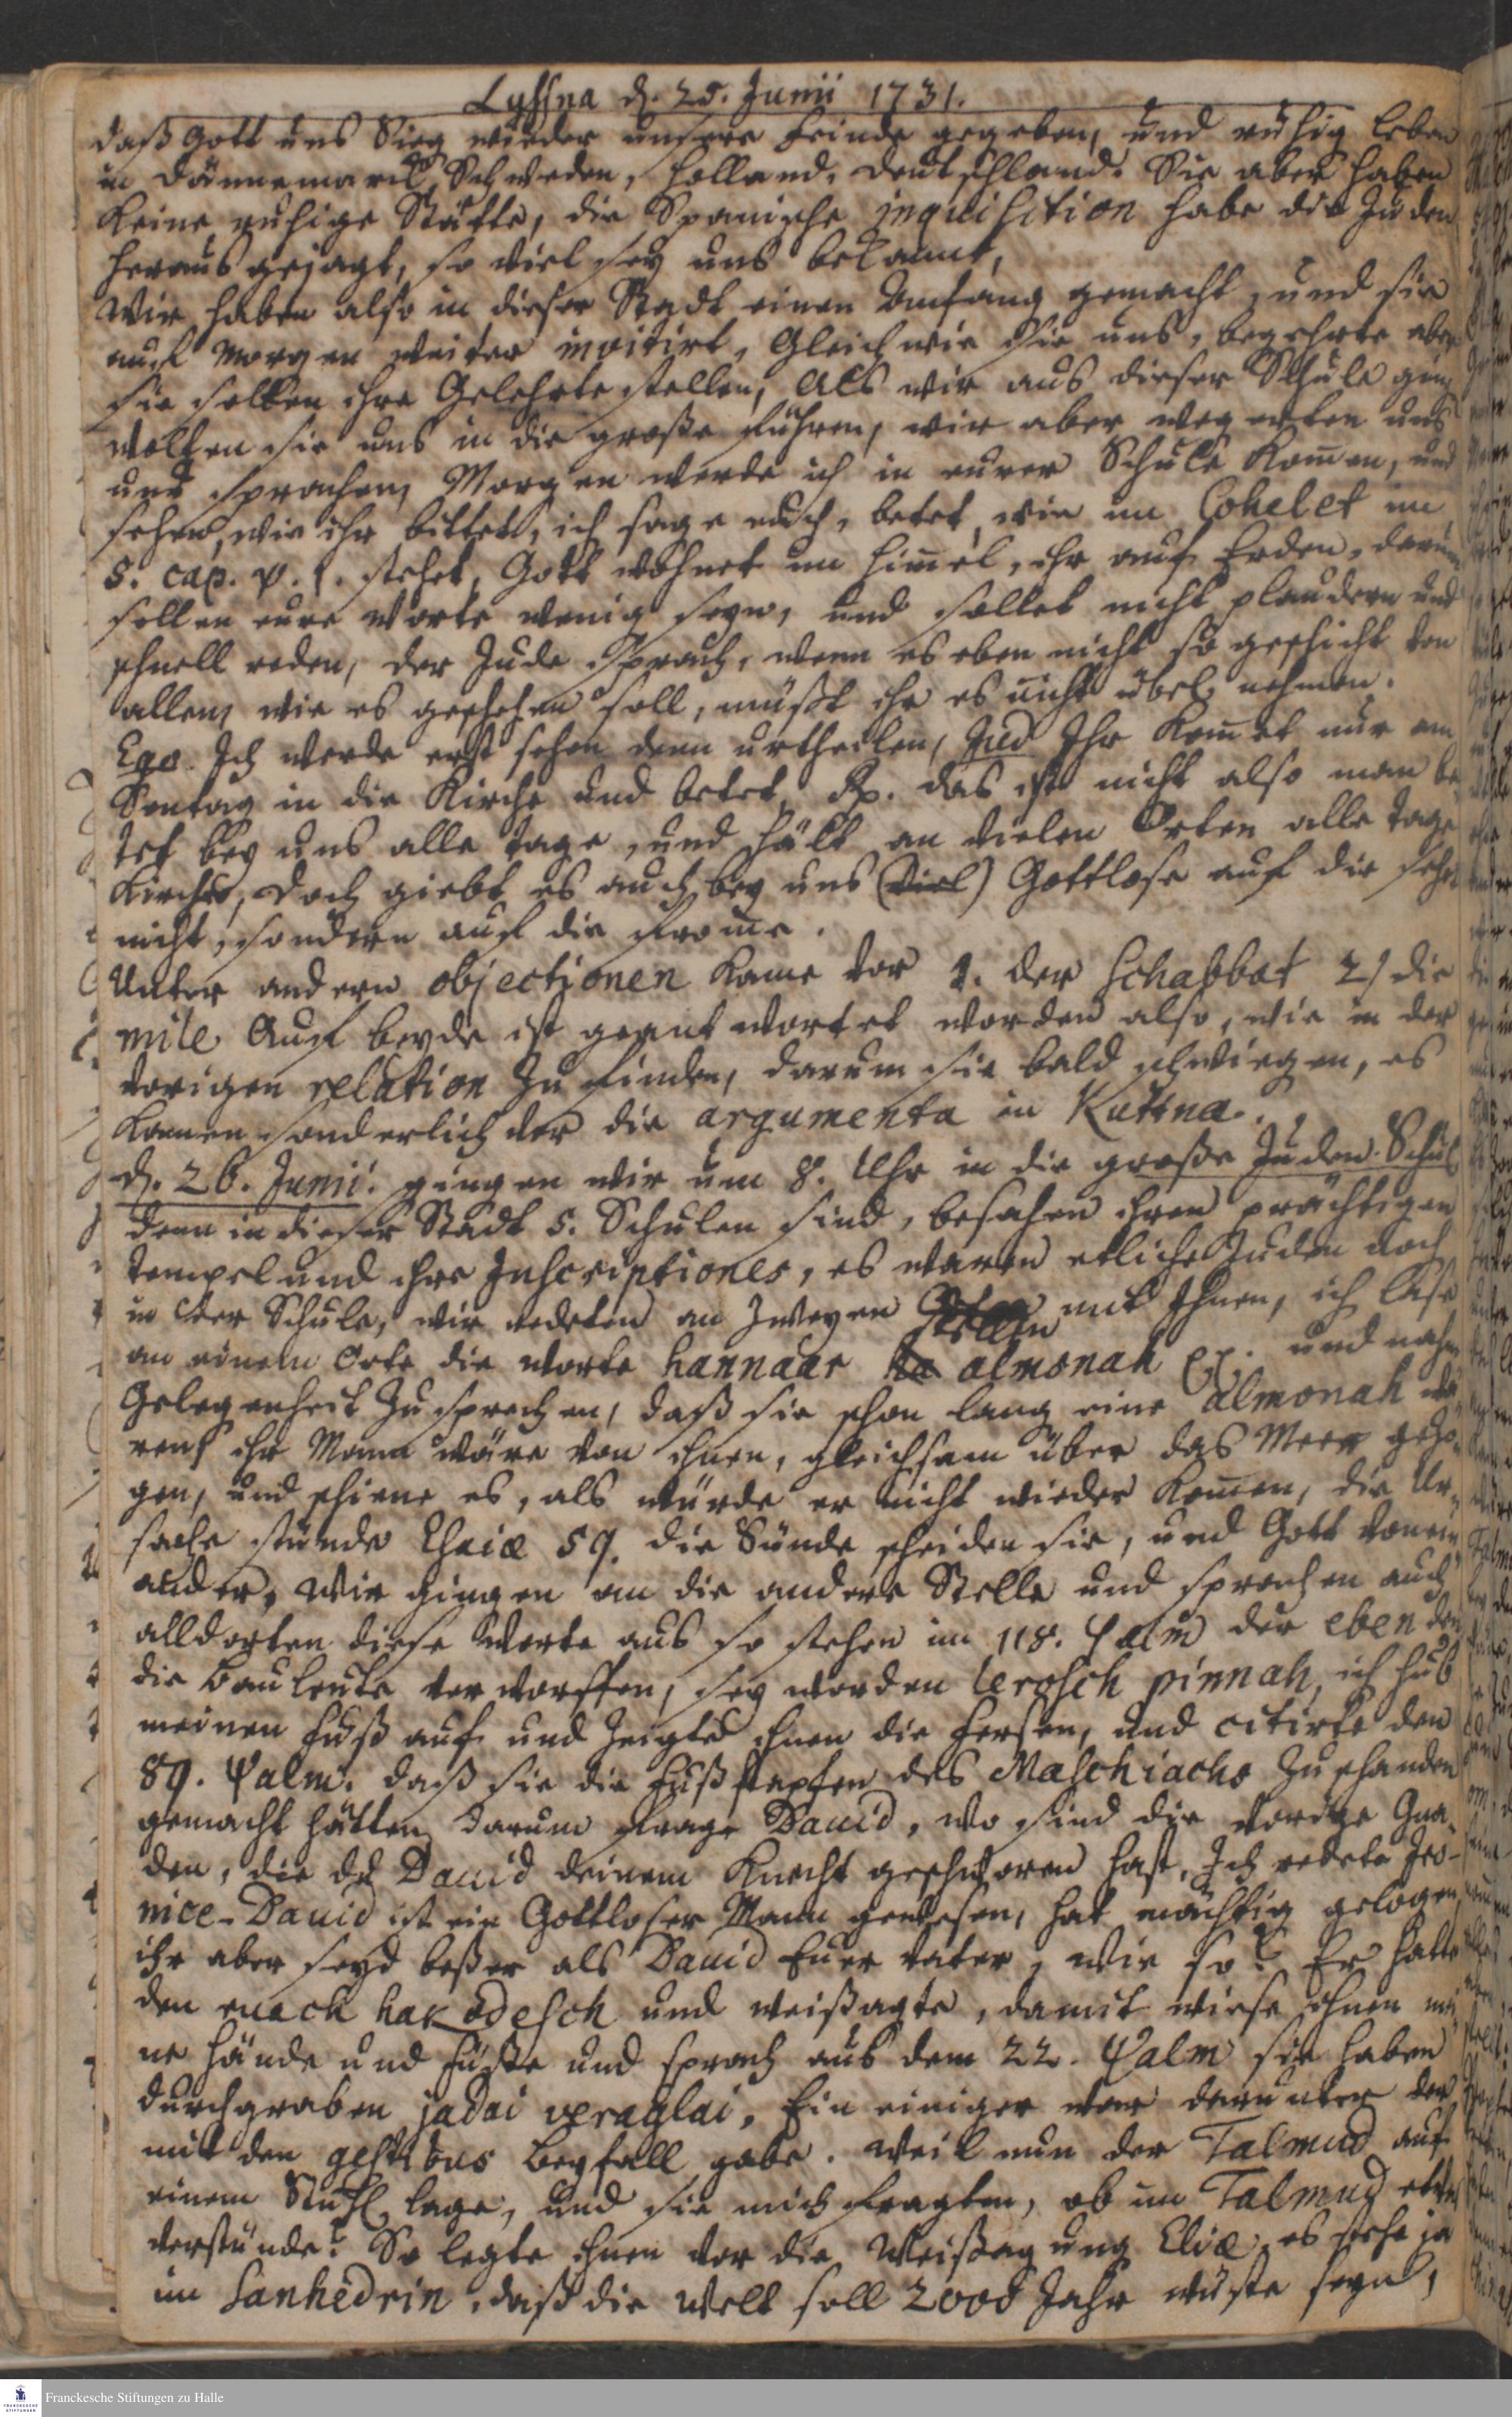 Lyssna d. 25. Junii 1731.
daß Gott uns Sieg wieder unsere Feinde gegeben, und ruhig leben
in Dännemarck, Schweden, Holland, Deutschland. Sie aber haben
keine ruhige Stätte, die Spanische inquisition habe die Juden
heraus gejagt, so viel sey uns bekannt,
Wir haben also in dieser Stadt einen Anfang gemacht, und sie
auf Morgen weiter invitirt, Gleich wie sie uns, begehrte aber
sie sollen ihre Gelehrte stellen, Als wir aus dieser Schule gin
wolten sie uns in die große führen, wir aber wegerten uns
und sprachen, Morgen werde ich in eurer Schule kom̄en, und
sehen, wie ihr bittet, ich sage euch, betet, wie im Cohelet im
5. cap. v. 1. stehet, Gott wohnet im Him̄el, ihr auf Erden, darum
sollen eure Worte wenig seyn, und sollet nicht plaudern und
schnell reden, der Jude sprach, wenn es eben nicht so geschicht von
allen, wie es geschehen soll, müßt ihr es nicht übel nehmen.
Ego. Ich werde erst sehen denn urtheilen, Jud Ihr kom̄et nur am
Sontag in die Kirche und betet, Rp. das ist nicht also man be
tet bey uns alle Tage, und hält an vielen Orten alle Tage
Kirche, doch giebt es auch bey uns (viel) Gottlose auf die sehet
nicht, sondern auf die From̄e.
Unter andern objectionen kame vor 1. der Schabbat 2) die
mile Auf beyde ist geantwortet worden also, wie in der
vorigen relation zu finden, darum sie bald schwiegen, es
kamen sonderlich vor die argumenta in Kuttna.
d. 26. Junii. gingen wir um 8. Uhr in die große Juden-Schul
denn in dieser Stadt 5. Schulen sind, besahen ihren prächtigen
Tempel und ihre Inscriptiones, es waren etliche Juden noch
in der Schule, wir redeten an zweyen Stellen mit Ihnen, ich lase
an einem Orte die Worte hannaar ha almonah pp. und nahm
Gelegenheit zu sprechen, daß sie schon lang eine almonah wä
ren, ihr Mann wäre von ihnen, gleichsam über das Meer gezo-
gen, und schiene es, als würde er nicht wieder kom̄en, die Ur-
sache stünde Esaiæ 59. die Sünde scheiden sie, und Gott vonein
ander, Wir gingen an die andere Stelle und sprachen auch
alldorten diese Worte aus so stehen im 118. Psalm der eben den
die Bauleute verworffen, sey worden lerosch pinnah, ich hub
meinen Fuß auf und zeigte ihnen die Fersen, und citirte den
89. Psalm. daß sie die Fußstapfen des Maschiachs zuschanden
gemacht hätten, darum frage David, wo sind die vorige Gna-
den, die du David deinem Knecht geschworen hast, Ich redete Iro-
nice. David ist ein Gottloser Mann gewesen, hat mächtig gelogen,
ihr aber seyd beßer als David Euer Vater, wie so? Er hatte
den ruach hakodesch und weißagte, damit wiese ihnen mei
ne Hände und Füße und sprach aus dem 22. Psalm sie haben
durchgraben jadai veraglai, Ein einiger war darunter der
mit den gestibus Beyfall gabe. Weil nun der Talmud auf
einem Stuhl lage, und sie mich fragten, ob im Talmud etwas
verstünde? So legte ihnen vor die Weißagung Eliæ, es stehe ja
im Sanhedrin, daß die Welt soll 2000 Jahr wüste seyn,
Franckesche Stiftungen zu Halle